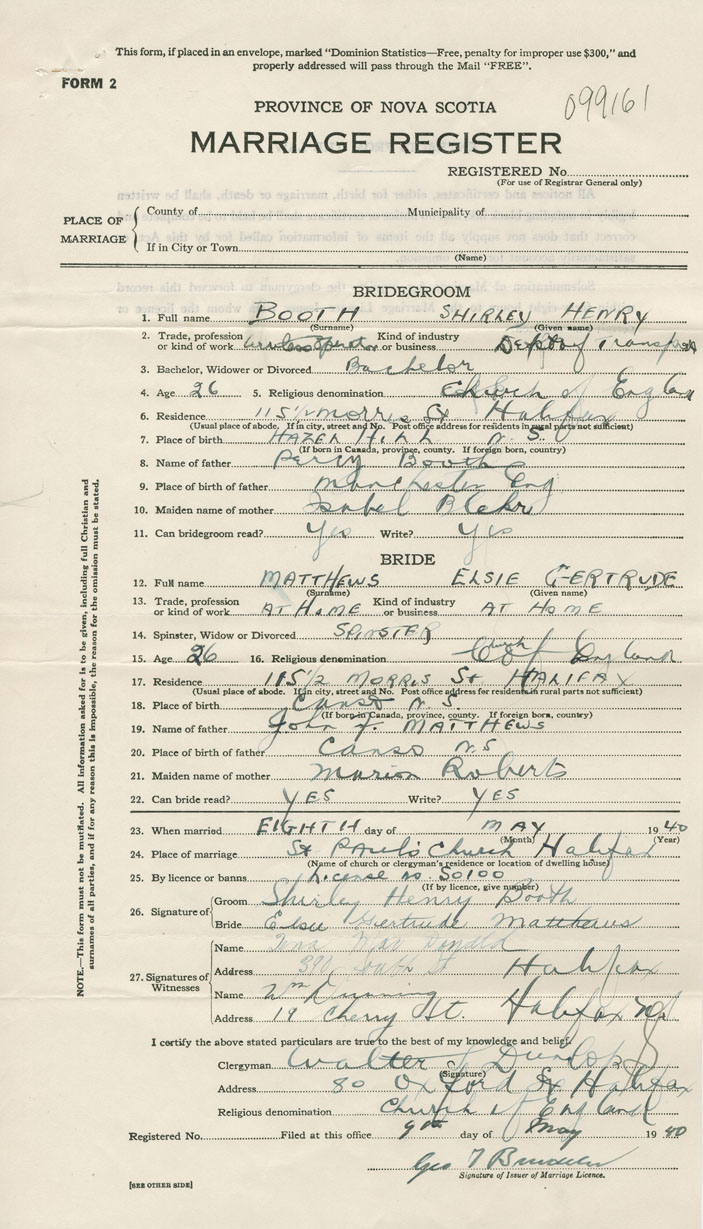 This form, if placed in an envelope, marked "Dominion Statistics—Free, penalty for improper use $300," and
properly addressed will pass through the Mail "FREE".
FORM 2
099161
PROVINCE OF NOVA SCOTIA
MARRIAGE REGISTER
REGISTERED No.
(For use of Registrar General only)
PLACE OF MARRIAGE
County of Municipality of
If in City or Town
(Name)
BRIDEGROOM
1. Full name BOOTH SHIRLEY HENRY
(Surname) (Given name)
2. Trade, profession or kind of work Wireless Operator Kind of industry or business Dept of Transport
3. Bachelor, Widower or Divorced Bachelor
4. Age 26 5. Religious denomination Church of England
6. Residence 115 1/2 Morris St Halifax
(Usual place of abode. If in city, street and No. Post office address for residents in rural parts not sufficient)
7. Place of birth HAZEL HILL N.S.
(If born in Canada, province, county. If foreign born, country)
8. Name of father Percy Booth
9. Place of birth of father Manchester Eng
10. Maiden name of mother Isabel
11. Can bridegroom read? Yes Write? Yes
BRIDE
12. Full name MATTHEWS ELSIE GERTRUDE
(Surname) (Given name)
13. Trade, profession or kind of work AT HOME Kind of industry or business AT HOME
14. Spinster, Widow or Divorced SPINSTER
15. Age 26 16. Religious denomination Church of England
17. Residence 115 1/2 MORRIS St HALIFAX
(Usual place of abode. If in city, street and No. Post office address for residents in rural parts not sufficient)
18. Place of birth Canso N.S.
(If born in Canada, province, county. If foreign born, country)
19. Name of father John J. MATTHEWS
20. Place of birth of father Canso N.S
21. Maiden name of mother Marion Roberts
22. Can bride read? YES Write? YES
23. When married EIGHTH day of MAY 1940
(Month) (Year)
24. Place of marriage St Paul's Church Halifax
(Name of church or clergyman's residence or location of dwelling house)
25. By licence or banns License no. 50100
(If by licence, give number)
26. Signature of
Groom Shirley Henry Booth
Bride Elsie Gertrude Matthews
27. Signatures of Witnesses
Name
Address South St Halifax
Name Wm
Address 19 Cherry St. Halifax NS
I certify the above stated particulars are true to the best of my knowledge and belief.
Clergyman Walter J Dunlop
(Signature)
Address 80 Oxford St Halifax
Religious denomination Church of England
Registered No. Filed at this office 9th day of May 1940
Geo T
Signature of Issuer of Marriage Licence.
[SEE OTHER SIDE]
NOTE.—This form must not be mutilated. All information asked for is to be given, including full Christian and
surnames of all parties, and if for any reason this is impossible, the reason for the omission must be stated.